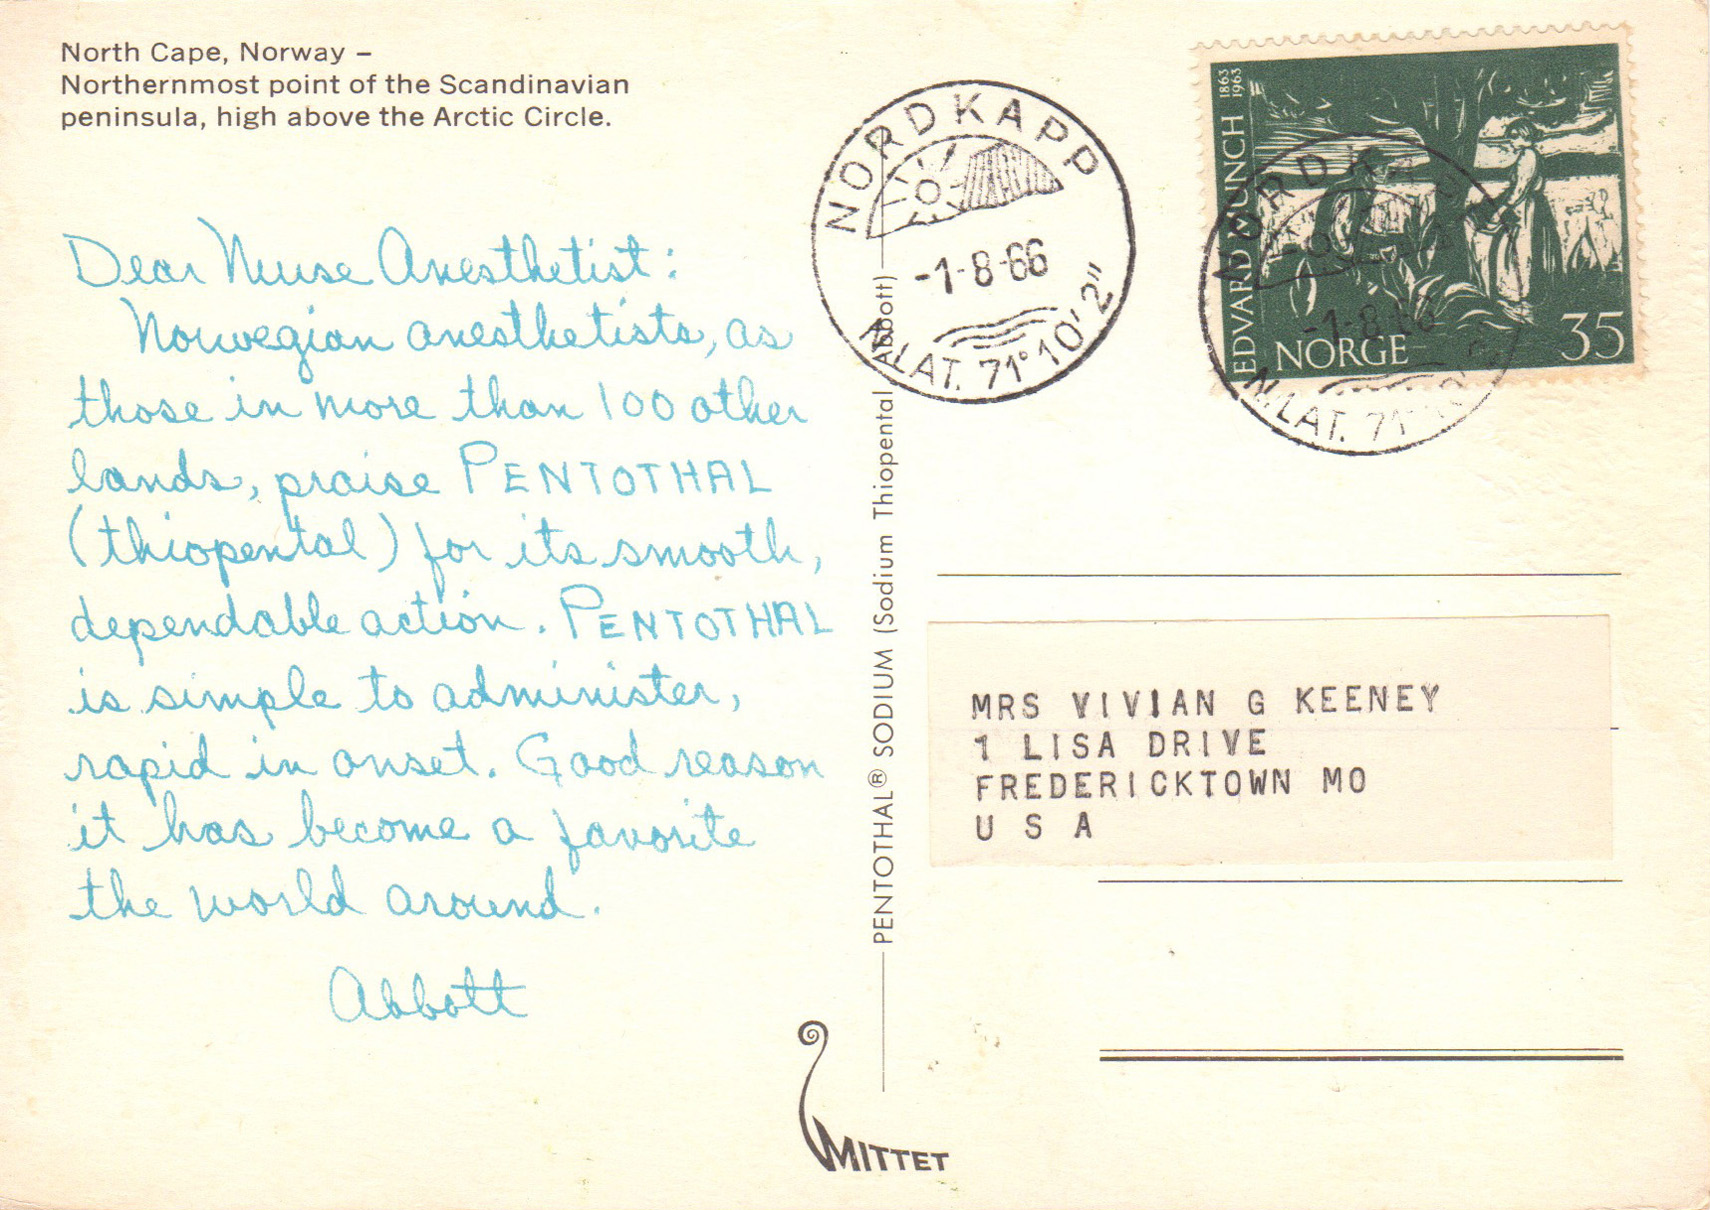 North Cape, Norway –
Northernmost point of the Scandinavian
peninsula, high above the Arctic Circle.
Dear Nurse Anesthetist:
Norwegian anesthetists, as
those in more than 100 other
lands, praise PENTOTHAL
(thiopental) for its smooth,
dependable action. PENTOTHAL
is simple to administer,
rapid in onset. Good reason
it has become a favorite
the world around.
Abbott
PENTOTHAL® SODIUM (Sodium Thiopental Abbott)
MITTET
NORDKAPP
-1-8-66
N.LAT. 71°10'2"
EDVARD MUNCH 1863 1963
NORGE 35
NORDKAPP
-1-8-66
N.LAT. 71°10'2"
MRS VIVIAN G KEENEY
1 LISA DRIVE
FREDERICKTOWN MO
U S A